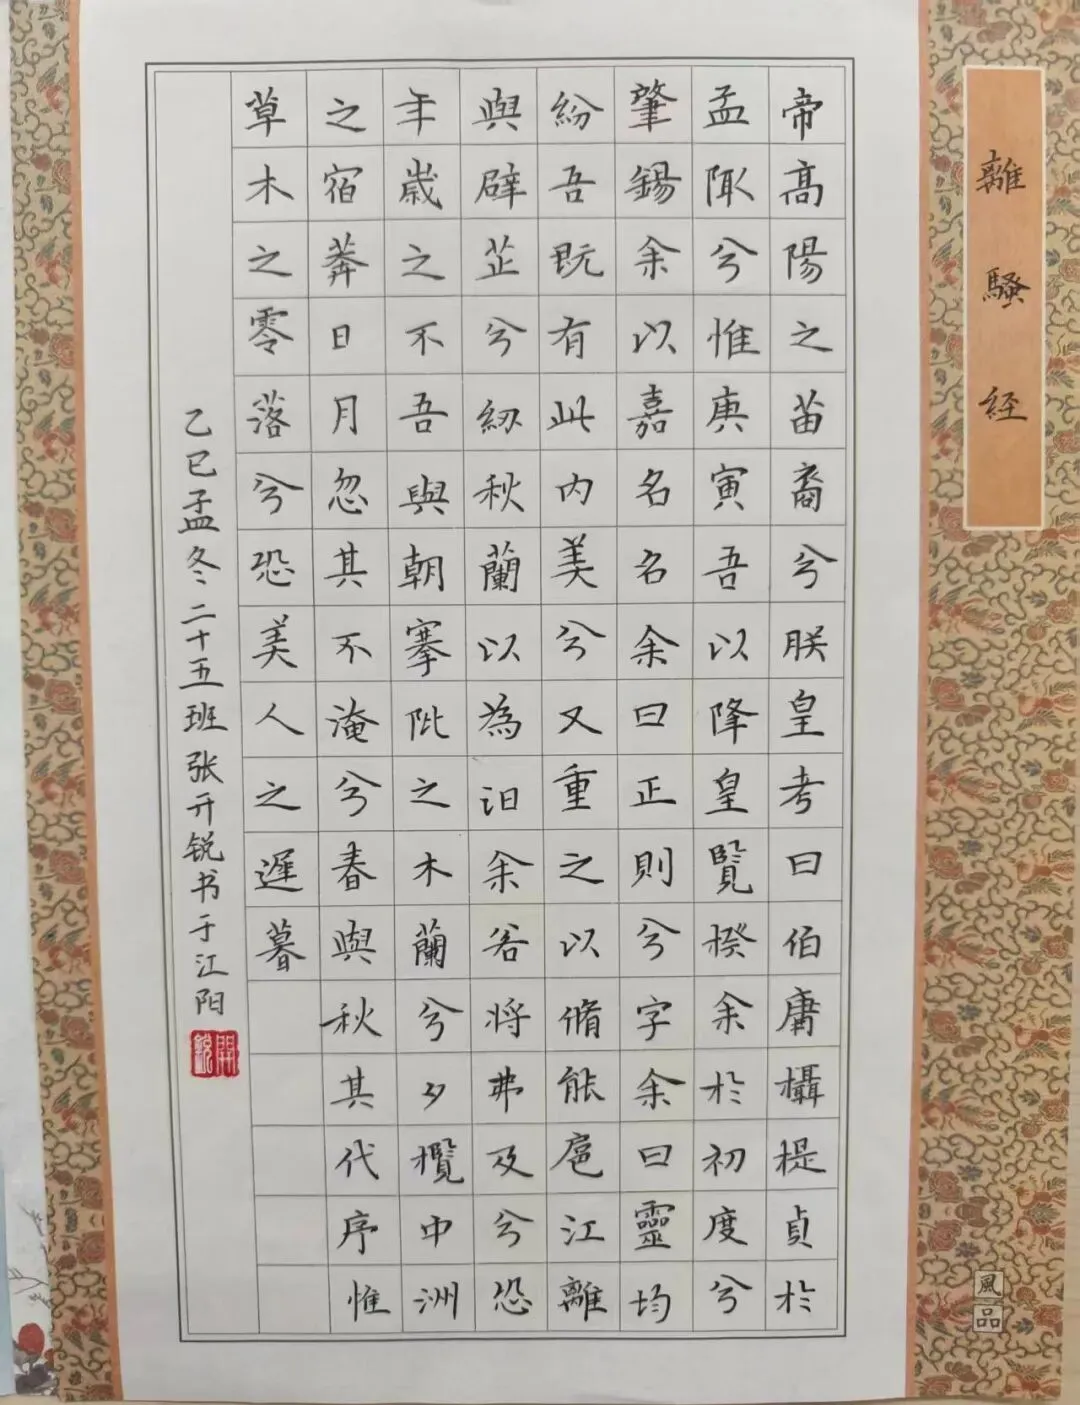 離騷经
帝高陽之苗裔兮朕皇考曰伯庸攝提貞於
孟陬兮惟庚寅吾以降皇覽揆余於初度兮
肇錫余以嘉名名余曰正則兮字余曰靈均
紛吾既有此内美兮又重之以脩能扈江離
與辟芷兮紉秋蘭以為汩余若將弗及兮恐
年歲之不吾與朝搴阰之木蘭兮夕攬中洲
之宿莽日月忽其不淹兮春與秋其代序惟
草木之零落兮恐美人之遲暮
乙巳孟冬二十五班张开锐书于江阳
開銳
風品